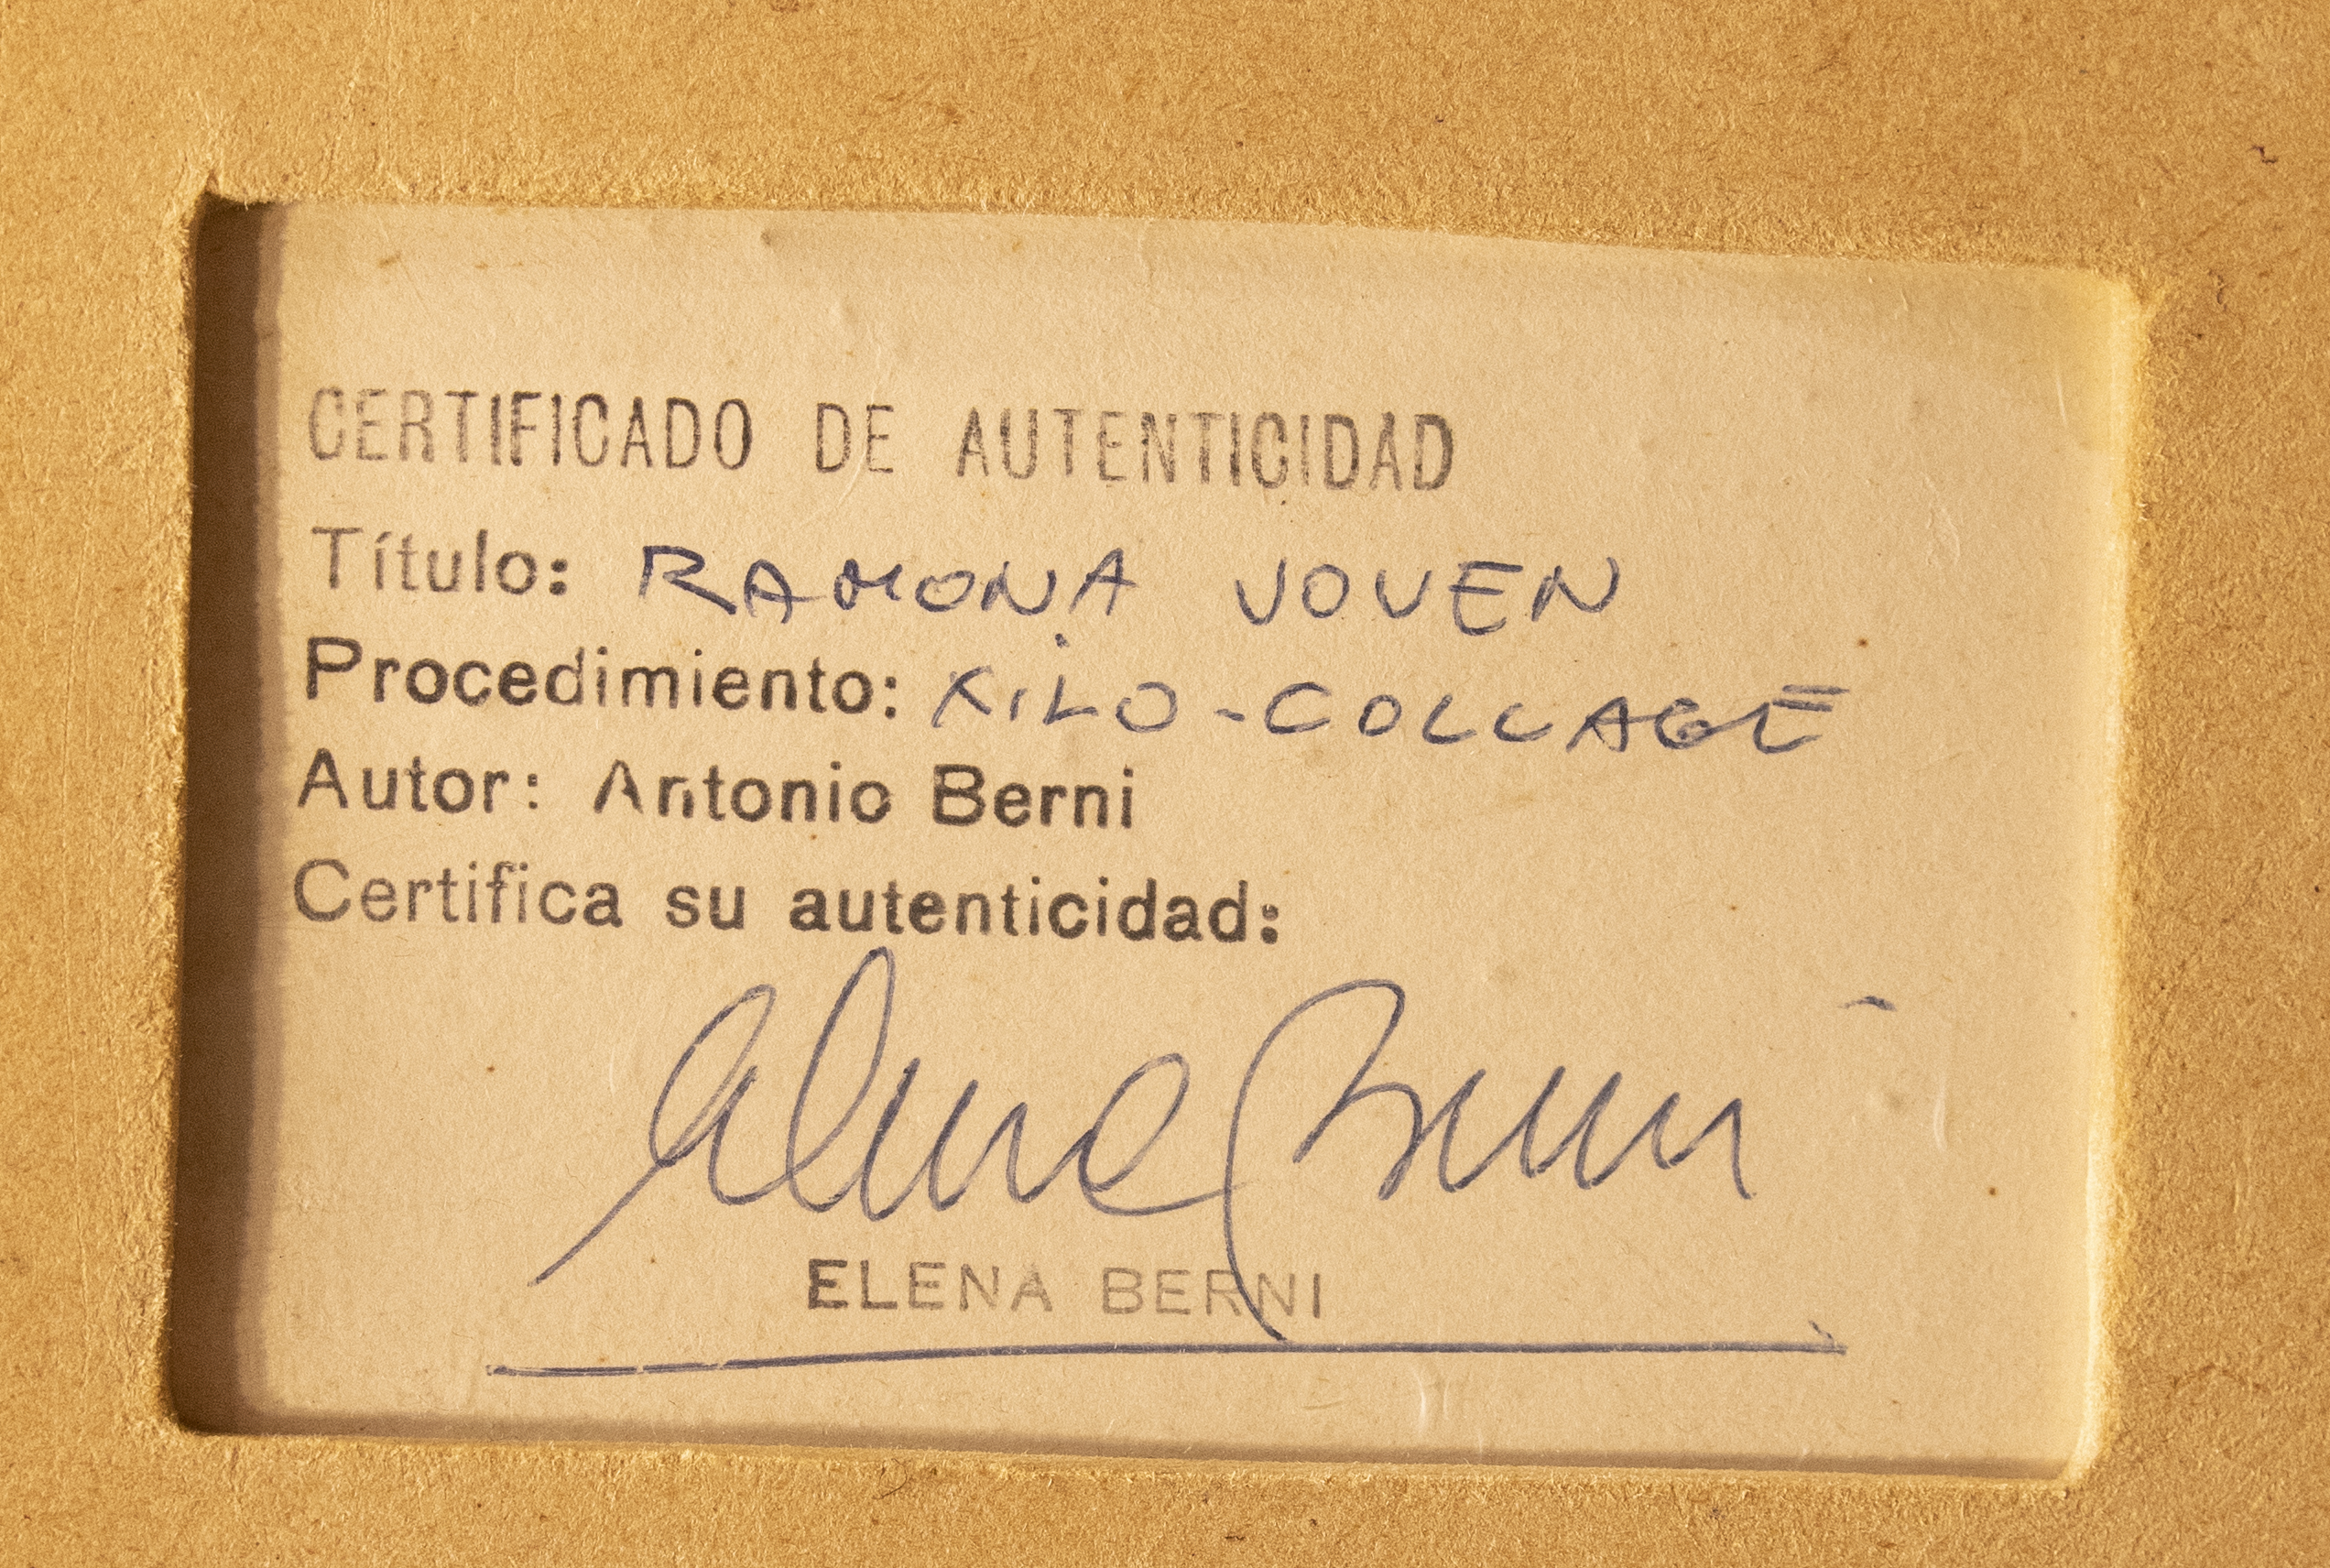 CERTIFICADO DE AUTENTICIDAD
Título: RAMONA JOVEN
Procedimiento: XILO-COLLAGE
Autor: Antonio Berni
Certifica su autenticidad:
Elena Berni
ELENA BERNI